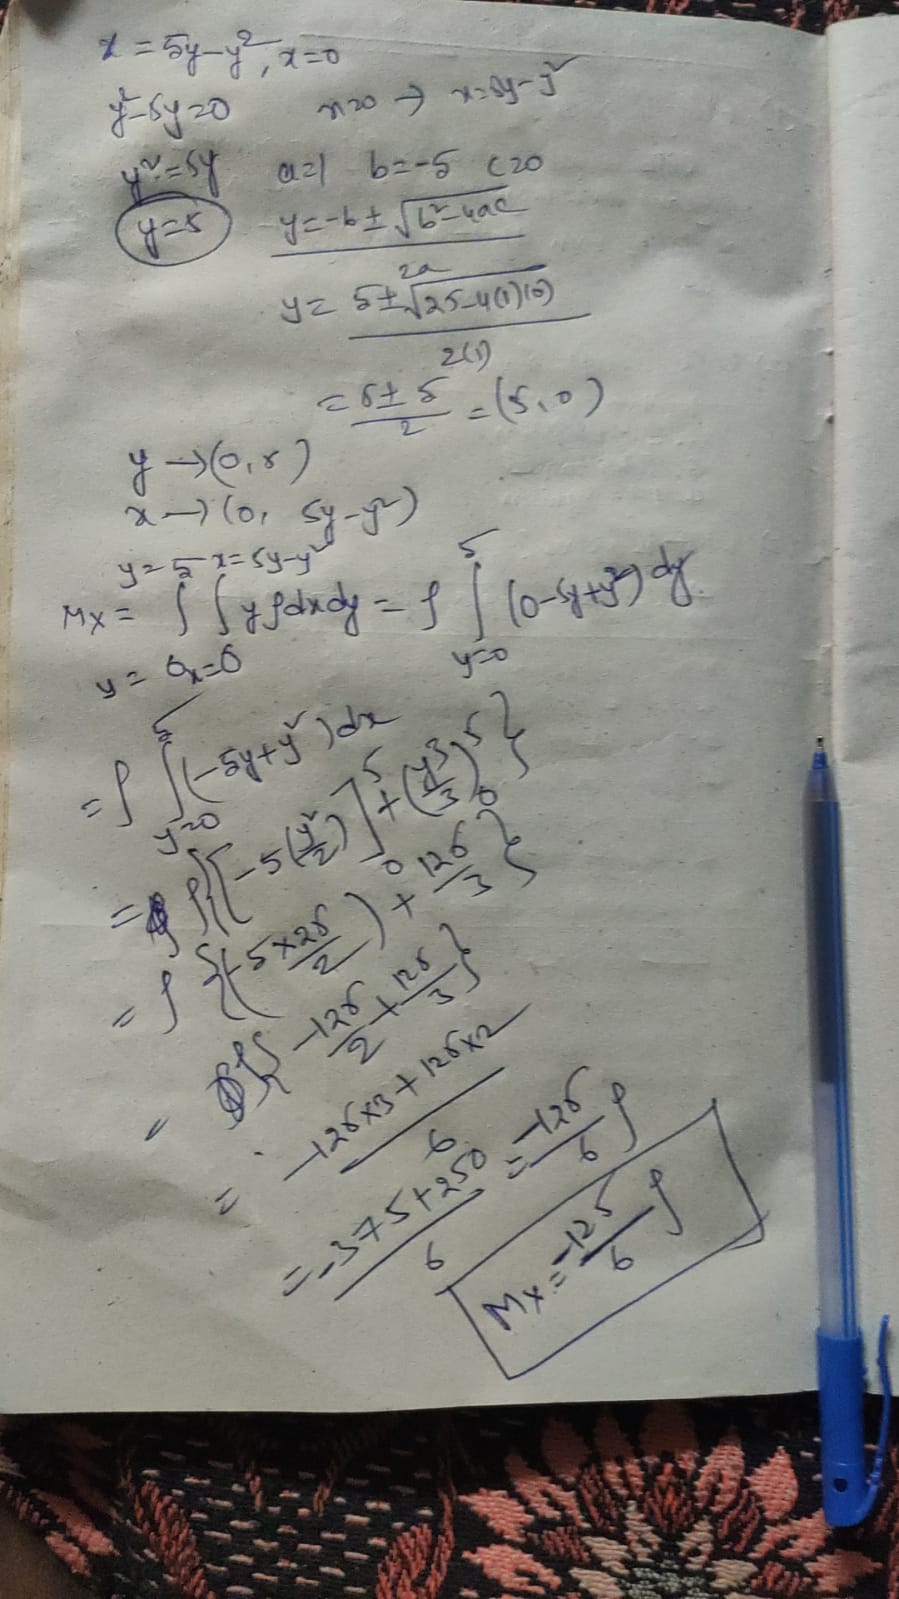 x = 5y-y², x=0
y²-5y=0 x=0 → x=5y-y²
y²=5y a=1 b=-5 c=0
y=5 y=-b±√b²-4ac
2a
y= 5±√25-4(1)(0)
2(1)
= 5±5/2 =(5,0)
y →(0,5)
x →(0, 5y-y²)
y=5 x=5y-y²
Mx = ∫ ∫ yρdxdy = ρ ∫ (0-5y+y²) dy
y= 0 x=0 y=0
5
=ρ ∫(-5y+y²)dx
y=0
= ρ{[-5(y²/2)]⁵₀ + (y³/3)⁵₀}
= ρ{(-5×25/2) + 125/3}
= ρ{-125/2 + 125/3}
= -125×3+125×2
6
= -375+250/6 = -125/6 ρ
Mx = -125/6 ρ